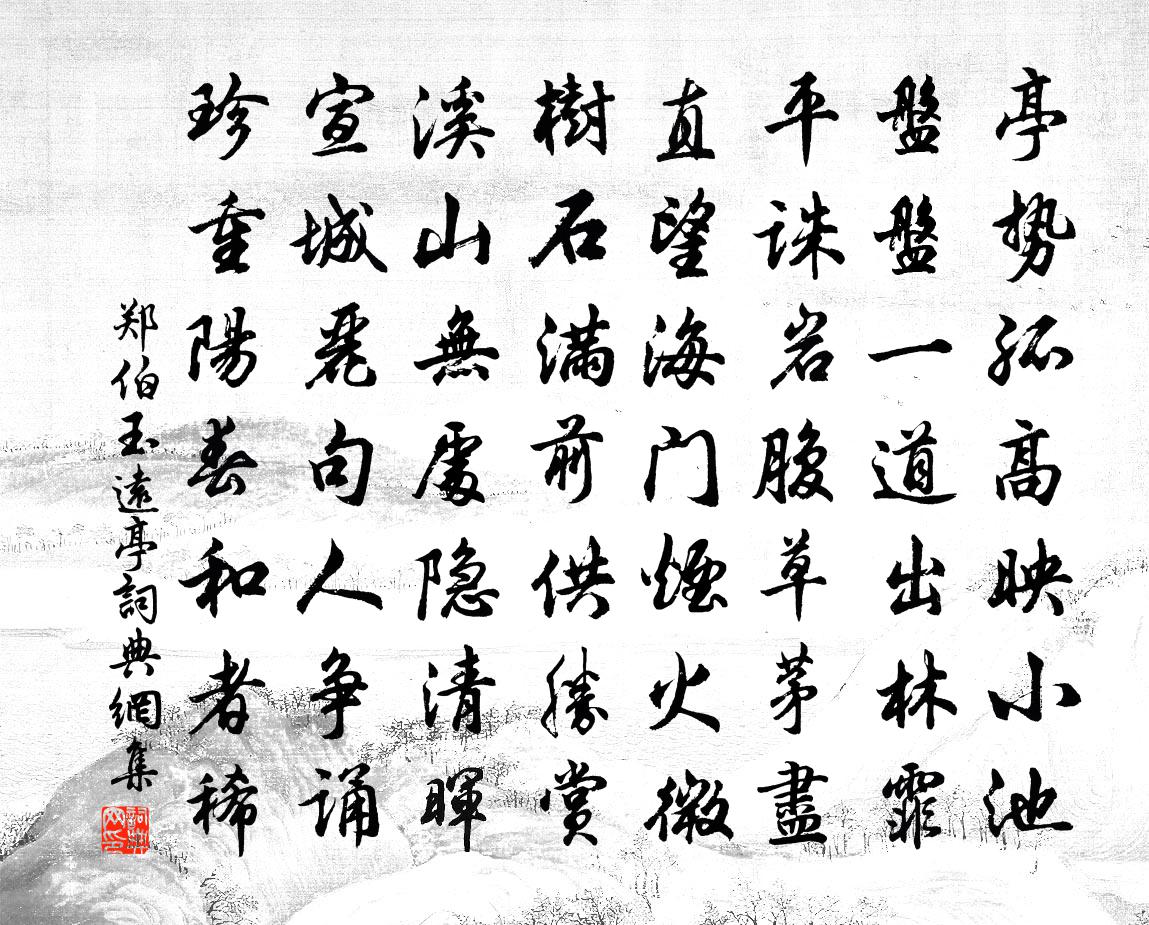 亭势孤高映小池
盤盤一道出林霏
平诛岩腹草茅盡
直望海门煙火微
樹石满前供勝賞
溪山無處隐清暉
宣城麗句人争诵
珍重陽春和者稀
郑伯玉遠亭詞典網集